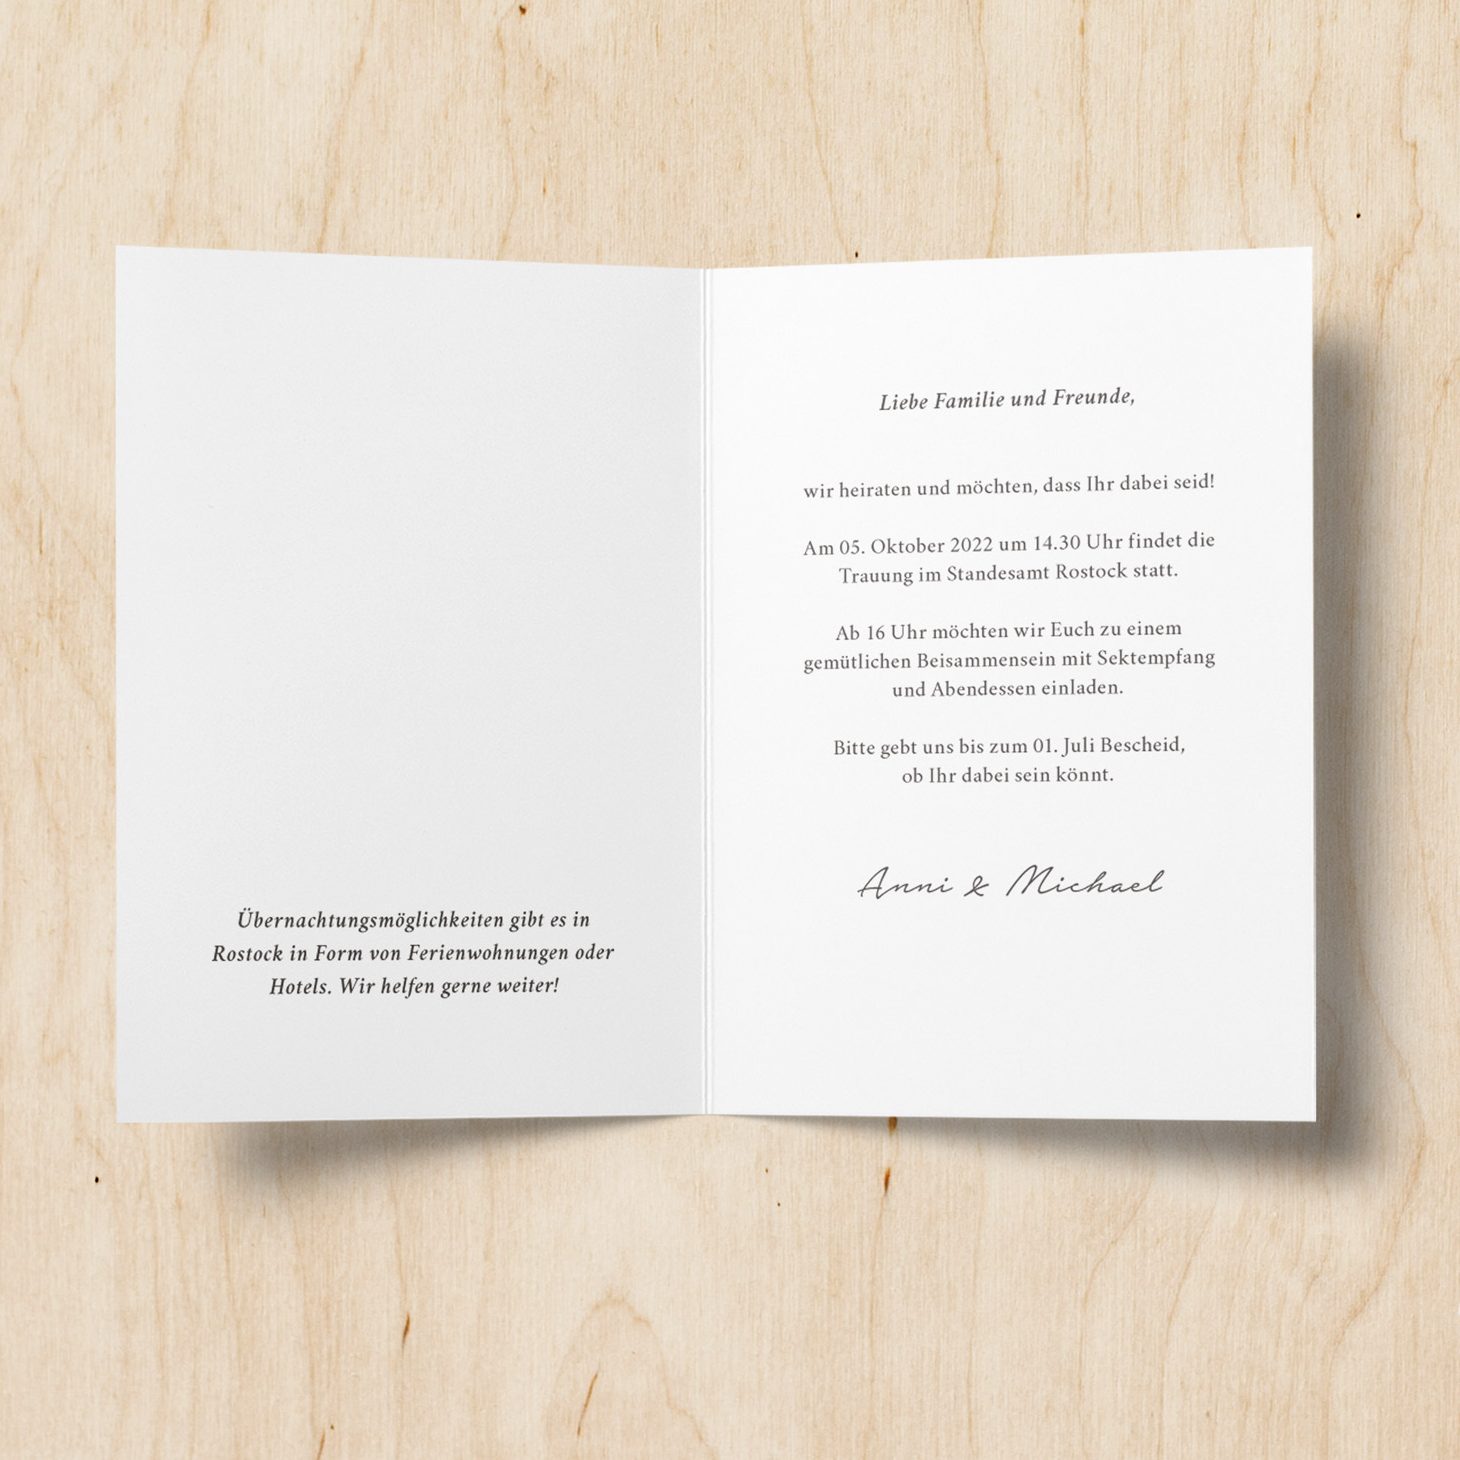 Übernachtungsmöglichkeiten gibt es in
Rostock in Form von Ferienwohnungen oder
Hotels. Wir helfen gerne weiter!
Liebe Familie und Freunde,
wir heiraten und möchten, dass Ihr dabei seid!
Am 05. Oktober 2022 um 14.30 Uhr findet die
Trauung im Standesamt Rostock statt.
Ab 16 Uhr möchten wir Euch zu einem
gemütlichen Beisammensein mit Sektempfang
und Abendessen einladen.
Bitte gebt uns bis zum 01. Juli Bescheid,
ob Ihr dabei sein könnt.
Anni & Michael